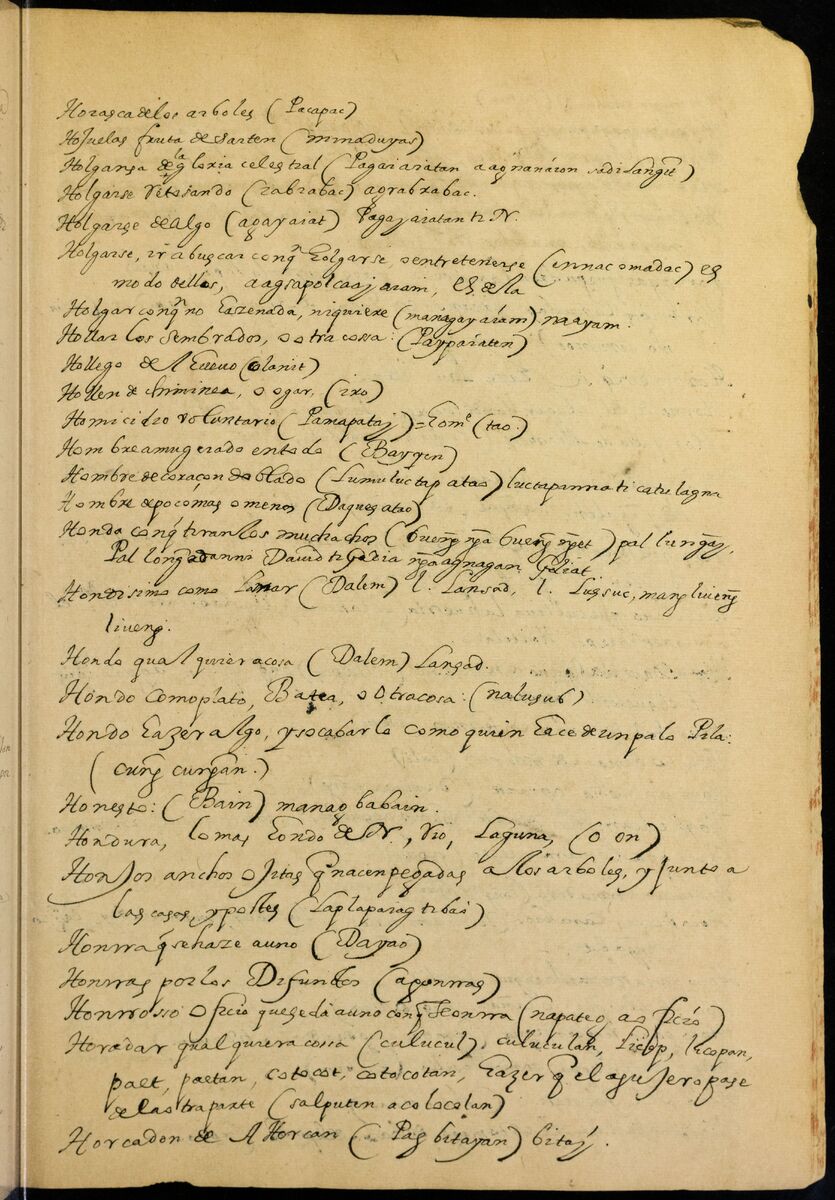 Horasca de los arboles (Pacapac)
Hojuelas fruta de sarten (mmaduyas)
Holgansa de la gloria celestial (Pagaiaiatan
Holgarse retosando (rabrabac) agrabrabac.
Holgarse de Algo (agayaiat) Pagayaiatan ti N.
Holgarse, ir a buscar conq̃ holgarse, o entretenerse (innacomadac) es
modo dellos, es de la
Holgar conq̃ no hazenada, niquiere (managayáiam) naayam.
Hollar los sembrados, o otra cossa: (Paypaiaten)
Hollejo de (olanit)
Hollen de chiminea, o ogar, (iro)
Homicidio voluntario (Pamapatay) = home (tao.)
Hombre amugerado entodo (Bayyen)
Hombre de coraçon doblado (Lumuluctap atao) luctapanna ti catulagna
Hombre depocomas omenos (Daques atao)
Honda conq̃ tiran los muchachos pal lungay,
Pal long̃ad anni David ti agnagan Goliat
Hondisimo como La mar (Dalem) l. Lansad, l. Lugsuc,
liueng̃.
Hondo qualquieracosa (Dalem) Lansad.
Hondo como plato, Batea, o otracosa: (nalusub)
Hondo hazer algo, y socabarlo como quien hace de unpalo Pila:
(cung̃ cung̃an.)
Honesto: (Bain) managbabain.
Hondura, lo mas hondo de N., rio, laguna, (o on)
Hon Jos anchos o Jitas q̃ nacen pegadas a los arboles, y junto a
las casas, y postes (Laplaparag tibai)
Honrra q̃ sehaze auno (Dayao)
Honrras por los Difuntos (agonrras)
Honrrosso oficio quese dá auno conq̃ le onrra (napateg, a oficio)
Horadar qualquiera cossa (culucul), culuculan, licop, licopan,
paet, paetan, cotocot, cotocotan, hazer q̃ el agujero pase
de la otra parte (salputen a colocolan)
Horcadon de Ahorcar (Pag bitayan) bitay.